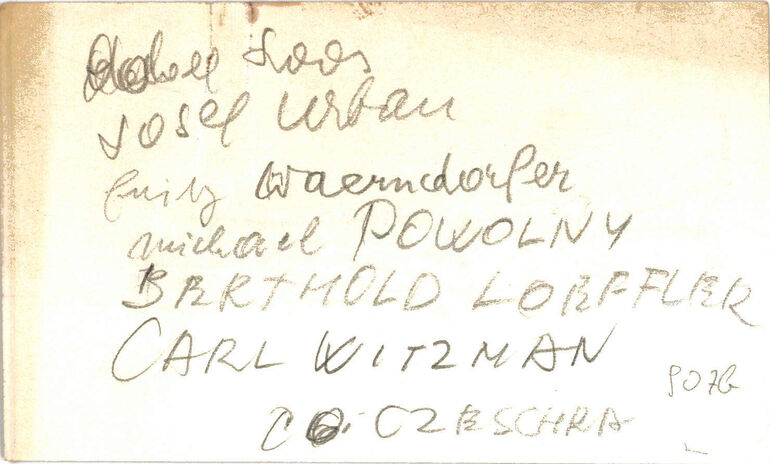 Adolf Loos
Josef Urban
fritz Waerndorfer
michael POWOLNY
BERTHOLD LOEFFLER
CARL WITZMAN
907b
C O. CZESCHKA